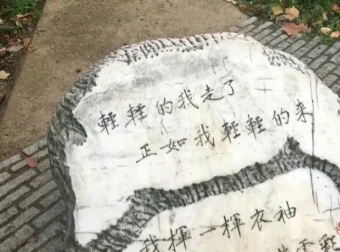 輕輕的我走了
正如我輕輕的來
我揮一揮衣袖
雲彩